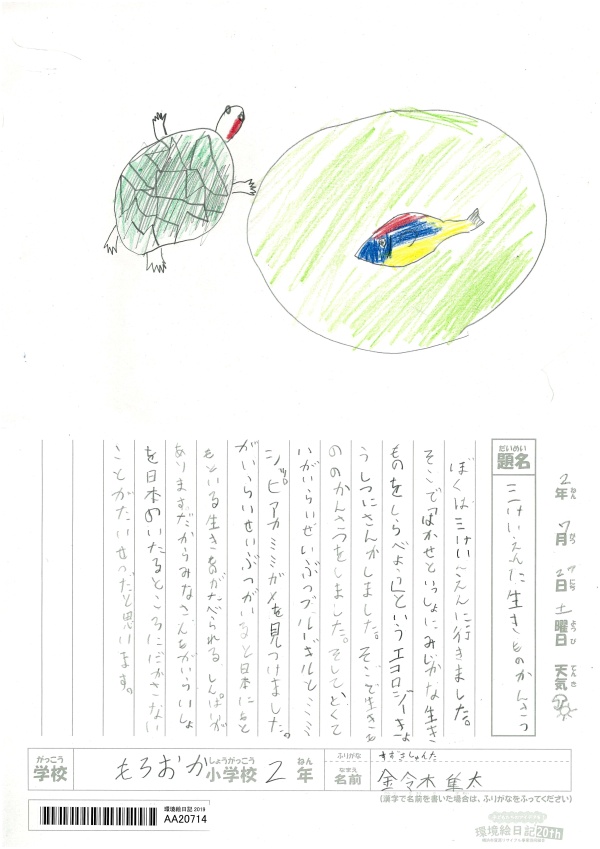 2年ねん7月がつ27日にち土曜日ようび天気てんき
だいめい
題名
三けいえんた生きものかんさつ
ぼくは三けいえんに行きました。
そこで「はかせといっしょにみじかな生き
ものをしらべよう」というエコロジーきょ
うしつにさんかしました。そこで生きも
ののかんさつをしました。そしてどくて
いがいらいせいぶつブルーギルとミシシ
ッピアカミミガメを見つけました。
がいらいせいぶつがいると日本にもと
もといる生きものがたべられるしんぱいが
あります。だからみなさんもがいらいしゅ
を日本のいたるところににがさない
ことがたいせつだと思います。
がっこう
学校
もろおか
しょうがっこう
小学校
2
ねん
年
ふりがな
すずきしゅんた
なまえ
名前
鈴木隼太
(漢字で名前を書いた場合は、ふりがなをふってください)
環境絵日記2019
AA20714
環境絵日記20th